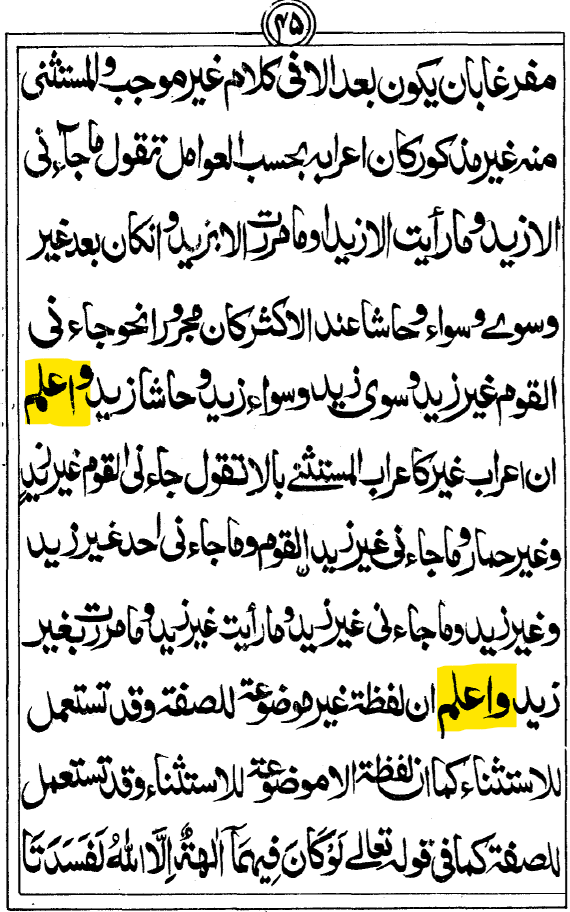 ۴۵
مفرغا بان یکون بعد الا فی کلام غیر موجب والمستثنی
منه غیر مذکور کان اعرابه بحسب العوامل تقول ما جآءنی
الا زید وما رأیت الا زیدا وما مررت الا بزید وانکان بعد غیر
وسوے وسواء وحاشا عند الاکثر کان مجرورا نحو جاءنی
القوم غیر زید وسوی زید وسواء زید وحاشا زید واعلم
ان اعراب غیر کاعراب المستثنے بالا تقول جاءنی القوم غیر زید
وغیر حمار وما جاءنی غیر زید القوم وما جاءنی احد غیر زید
وغیر زید وما جاءنی غیر زید وما رأیت غیر زید وما مررت بغیر
زید واعلم ان لفظة غیر موضوعة للصفة وقد تستعمل
للاستثناء کما ان لفظة الا موضوعة للاستثناء وقد تستعمل
للصفة کما فی قوله تعالے لَوْ کَانَ فِیهِمَآ اٰلِهَةٌ اِلَّا اللهُ لَفَسَدَتَا